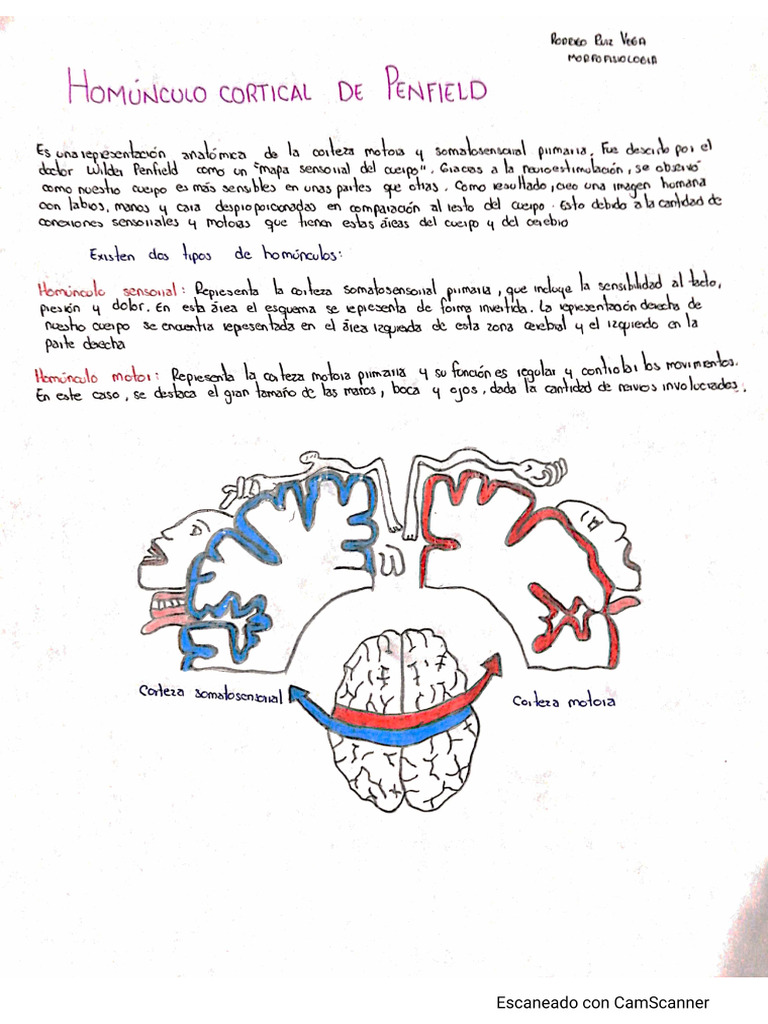 RODRIGO RUIZ VEGA
MORFOFISIOLOGIA
HOMÚNCULO CORTICAL DE PENFIELD
Es una representación anatómica de la corteza motora y somatosensorial primaria. Fue descrito por el
doctor Wilder Penfield como un "mapa sensorial del cuerpo". Gracias a la neuroestimulación, se observó
como nuestro cuerpo es más sensibles en unas partes que otras. Como resultado, creo una imagen humana
con labios, manos y cara desproporcionadas en comparación al resto del cuerpo. Esto debido a la cantidad de
conexiones sensoriales y motoras que tienen estas áreas del cuerpo y del cerebro
Existen dos tipos de homúnculos:
Homúnculo sensorial: Representa la corteza somatosensorial primaria, que incluye la sensibilidad al tacto,
presión y dolor. En esta área el esquema se representa de forma invertida. La representación derecha de
nuestro cuerpo se encuentra representada en el área izquierda de esta zona cerebral y el izquierdo en la
parte derecha
Homúnculo motor: Representa la corteza motora primaria y su función es regular y controlar los movimientos.
En este caso, se destaca el gran tamaño de las manos, boca y ojos, dada la cantidad de nervios involucrados.
Corteza somatosensorial
Corteza motora
Escaneado con CamScanner